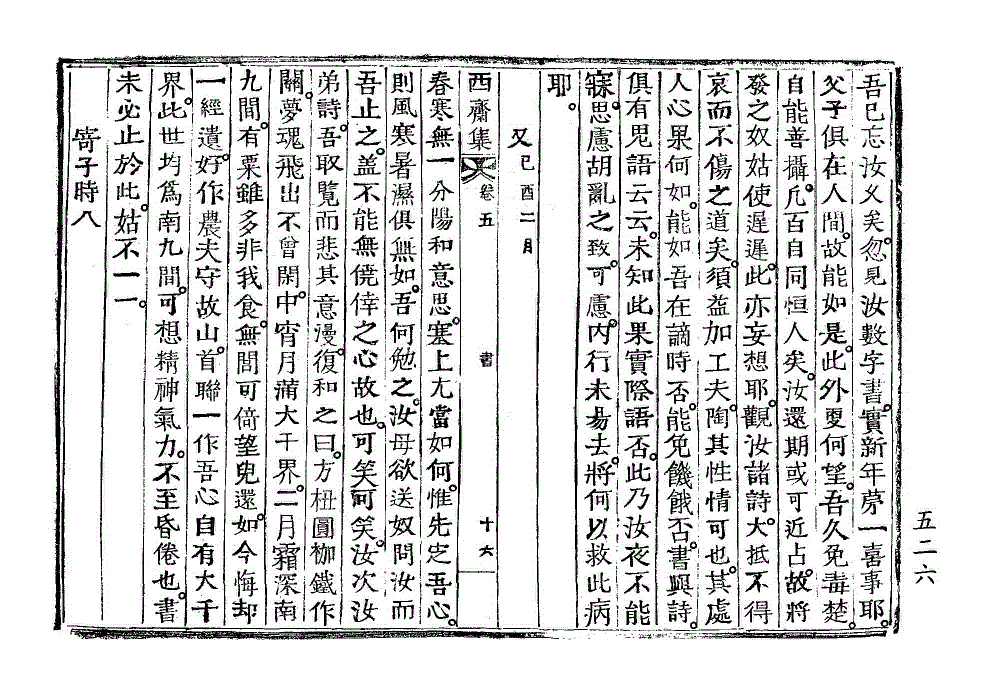 吾已忘汝文矣。忽見汝數字書。實新年夢一喜事耶。
父子俱在人間。故能如是。此外更何望。吾久免毒楚。
自能善攝。凡百自同恒人矣。汝還期或可近占。故將
發之奴姑使遲遲。此亦妄想耶。觀汝諸詩。大抵不得
哀而不傷之道矣。須益加工夫。陶其性情可也。其處
人心果何如。能如吾在謫時否。能免饑餓否。書與詩
俱有鬼語云云。未知此果實際語否。此乃汝夜不能
寐。思慮胡亂之致。可慮。內行未易去。將何以救此病
耶。
又 己酉二月
西齋集 卷五 書 十六
春寒無一分陽和意思。塞上尤當如何。惟先定吾心。
則風寒暑濕俱無如。吾何勉之。汝母欲送奴問汝而
吾止之。盖不能無僥倖之心故也。可笑可笑。汝次汝
弟詩。吾取覽而悲其意。漫復和之曰。方杻圓枷鐵作
關。夢魂飛出不曾閑。中宵月滿大千界。二月霜深南
九間。有粟雖多非我食。無閭可倚望兒還。如今悔却
一經遺。好作農夫守故山。首聯一作吾心自有大千
界。此世均爲南九間。可想精神氣力。不至昏倦也。書
未必止於此。姑不一一。
寄子時八
五二六